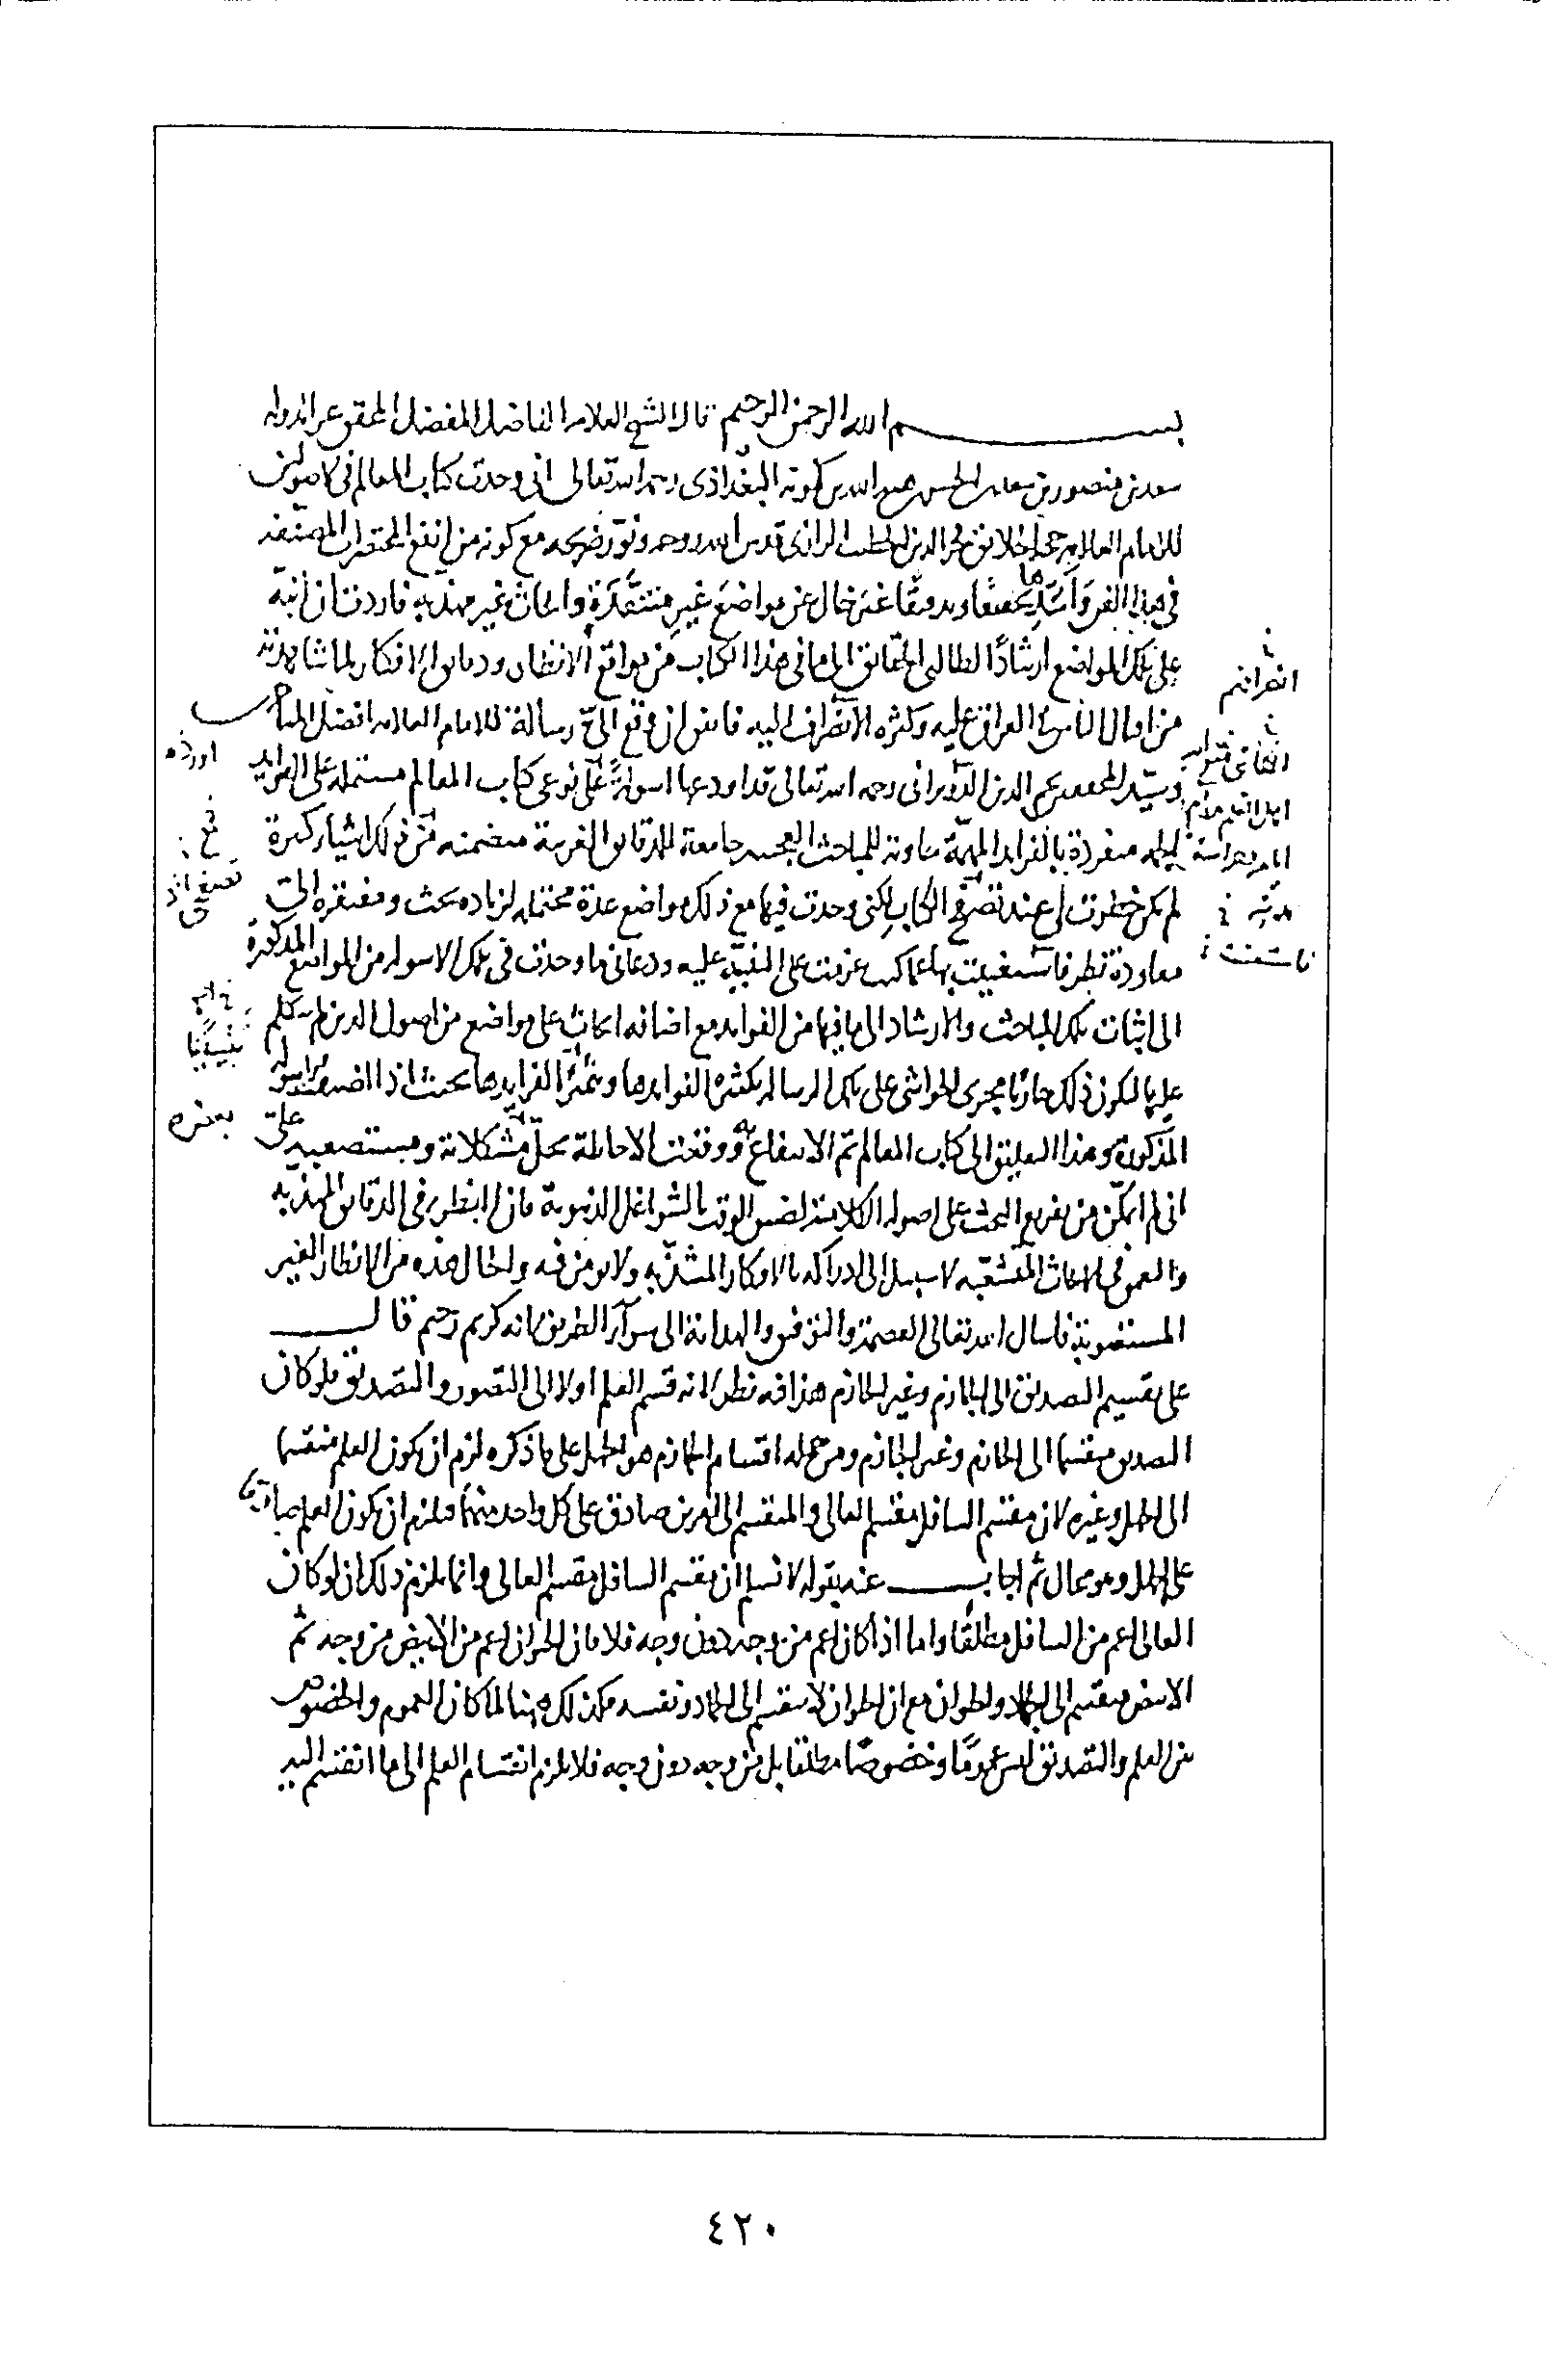 بسم الله الرحمن الرحيم قال الشيخ العلامه الفاضل المفضل المحقق عز الدوله
سعد بن منصور بن سعد بن الحسن بن هبه الله بن كمونه البغدادى رحمه الله تعالى انى وجدت كتاب المعالم فى الاصولين
للامام العلامه حجه الخلائق فخر الدين بن الخطيب الرازى قدس الله روحه ونور ضريحه مع كونه من انفع المختصرات المصنفه
فى هذا الفن واسدها تحقيقا وتدقيقا غير خال عن مواضع غير منتقدة وابحاث غير مهذبه فاردت ان انبه
على تلك المواضع ارشادا لطالبى الحقائق الى ما فى هذا الكتاب من مواقع الانظار ودقايق الافكار لما شاهدته
من اقبال الناس فى العراق عليه وكثره الانصراف اليه فاتفق ان وقع الى رسالة للامام العلامه افضل
وسيد المحققين نجم الدين الدويرانى رحمه الله تعالى قد اودعها اسولة على نوعى كتاب المعالم مشتمله على الفوايد
الجليله منفردة بالفرايد المهمة حاوية للمباحث العجيبه جامعة للدقايق الغريبة متضمنه من ذلك اشياء كثيرة
لم يكن خطرت لى عند تصفحى الكتاب لكنى وجدت فيها مع ذلك مواضع عدة محتمله لزياده بحث ومفتقره الى
معاودة نظر فاستغنيت بها عما كنت عزمت على التنبيه عليه ودعانى ما وجدت فى تلك الاسوله من المواضع المذكورة
الى اثبات تلك المباحث والارشاد الى ما فيها من الفوايد مع اضافه ابحاث على مواضع من اصول الدين لم يتكلم
عليها ليكون ذلك جاريا مجرى الحواشى على تلك الرسالة تكثيرا لفوايدها وتثميرا لفرايدها بحيث اذا اضيف
المذكورة وهذا التعليق الى كتاب المعالم تم الانتفاع به ووقعت الاحاطة بحل مشكلاته ومستصعبه على
انى لم اتمكن من تفريع البحث على اصوله الكلامية لضيق الوقت بالشواغل الدنيوية فان النظر فى الدقايق المهذبه
والتعمق فى الابحاث المتشعبه لا سبيل الى ادراكه بالافكار المشذبه ولا يؤمن فيه والحال هذه من الانظار الغير
المستصوبة فاسال الله تعالى العصمة والتوفيق والهداية الى سواء الطريق انه كريم رحيم قال
على تقسيم التصديق الى الجازم وغير الجازم هذا فيه نظر لانه قسم العلم اولا الى التصور والتصديق فلو كان
التصديق منقسما الى الجازم وغير الجازم ومن جمله اقسام الجازم هو الجهل على ما ذكره لزم ان يكون العلم منقسما
الى الجهل وغيره لان مقسم السافل مقسم العالى والمنقسم الى امرين صادق على كل واحد منهما فلزم ان يكون العلم صادقا
على الجهل وهو محال ثم اجاب عنه بقوله لا نسلم ان مقسم السافل مقسم العالى وانما يلزم ذلك ان لو كان
العالى اعم من السافل مطلقا واما اذا كان اعم من وجه دون وجه فلا فان الحيوان اعم من الابيض من وجه ثم
الابيض منقسم الى الجماد والحيوان مع ان الحيوان لا ينقسم الى الجماد ونفسه فكذلك ههنا لما كان العموم والخصوص
بين العلم والتصديق ليس عموما وخصوصا مطلقا بل من وجه دون وجه فلا يلزم انقسام العلم الى ما انقسم اليه
٤٢٠